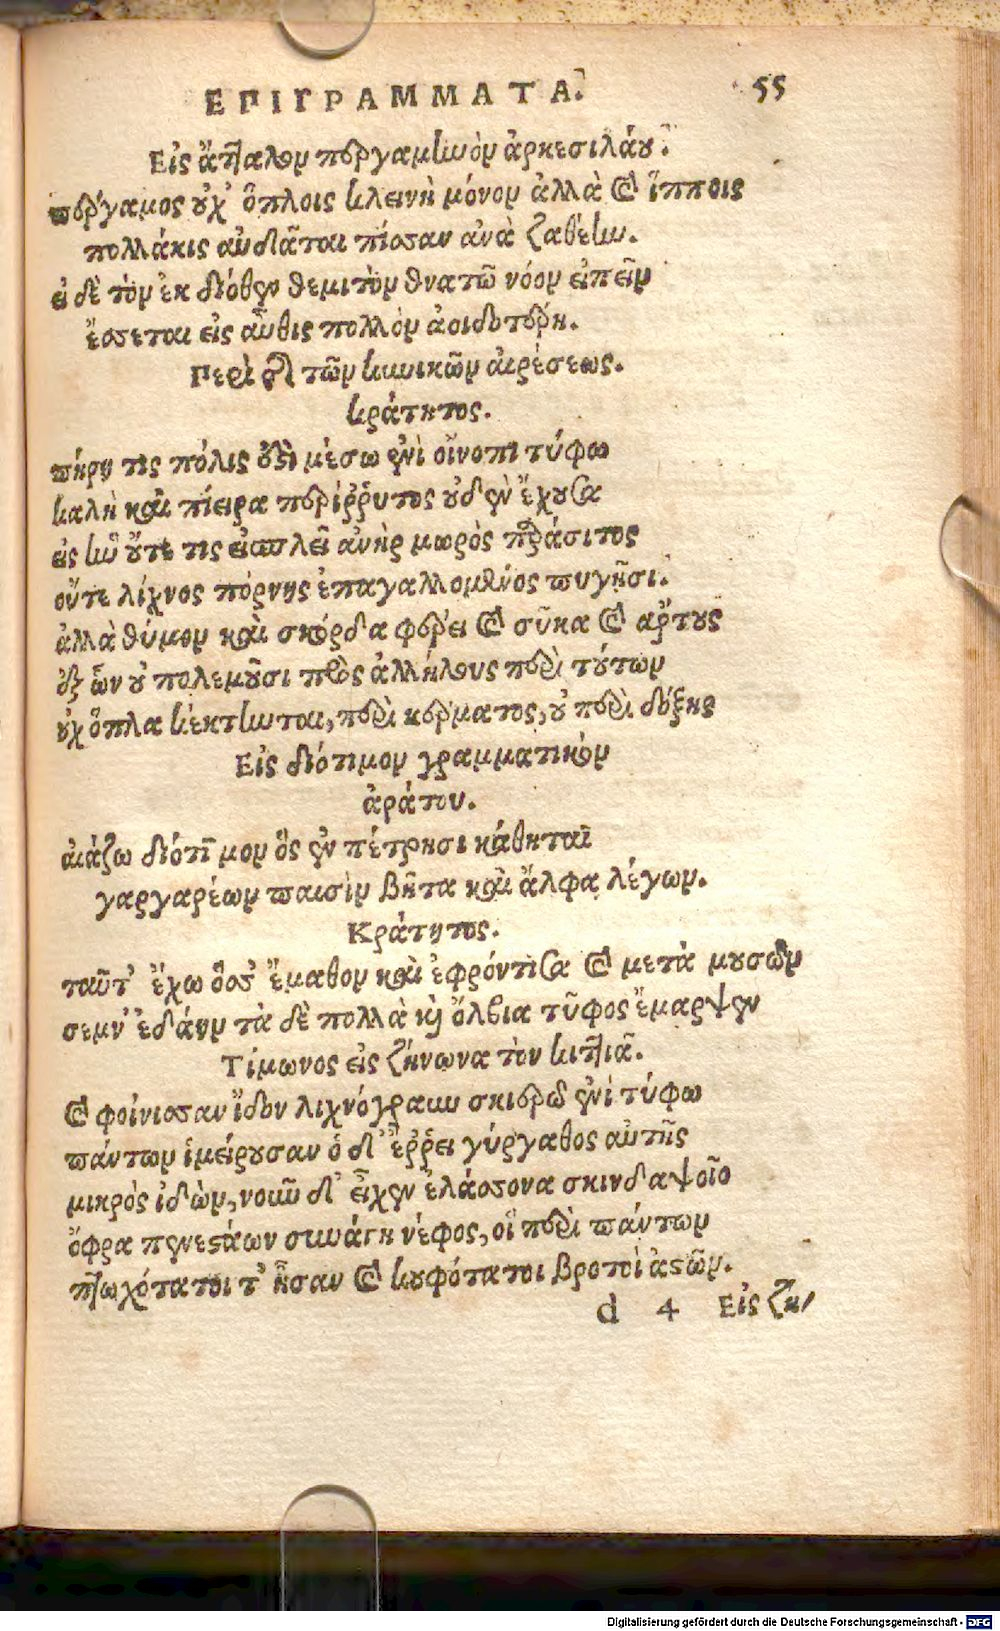 ΕΠΙΓΡΑΜΜΑΤΑ. 55
Εἰς ἄτταλον περγαμηνὸν ἀρκεσιλάου.
περγαμος οὐχ' ὅπλοις κλεινὴ μόνον ἀλλὰ καὶ ἵπποις
πολλάκις αὐδᾶται πίσσαν ἀνὰ ζαθέην.
εἰ δὲ τὸν ἐκ διόθεν θεμιτὸν θνατῶ νόον εἰπεῖν
ἔσσεται εἰς αὖθις πολλὸν ἀοιδοτέρη.
Περὶ τῶν κυνικῶν αἱρέσεως.
κράτητος.
πήρη τὶς πόλις ἐστὶ μέσω ἐνὶ οἴνοπι τύφω
καλὴ καὶ πίειρα περίῤῥυτος οὐδὲν ἔχουσα
εἰς ἣν οὔτε τις εἰσπλεῖ ἀνὴρ μωρὸς παράσιτος
οὔτε λίχνος πόρνης ἐπαγαλλομενος πυγῆσι.
ἀλλὰ θύμον καὶ σκόρδα φέρει καὶ σῦκα καὶ ἄρτους
ἐξ ὧν οὐ πολεμοῦσι πρὸς ἀλλήλους περὶ τούτων
οὐχ ὅπλα κέκτηνται, περὶ κέρματος, οὐ περὶ δόξης
Εἰς διότιμον γραμματικὸν
ἀράτου.
αἰάζω διότιμον ὃς ἐν πέτρησι κάθηται
γαργαρέων παισὶν βῆτα καὶ ἄλφα λέγων.
Κράτητος.
ταῦτ' ἔχω ὅσσ' ἔμαθον καὶ ἐφρόντισα καὶ μετὰ μουσῶν
σεμν' ἐδάην τὰ δὲ πολλὰ καὶ ὄλβια τῦφος ἔμαρψεν
Τίμωνος εἰς ζήνωνα τὸν κιτιᾶ.
καὶ φοίνισσαν ἴδον λιχνόγραυν σκιερῶ ἐνὶ τύφω
πάντων ἱμείρουσαν ὁ δ' ἔῤῥει γύργαθος αὐτῆς
μικρὸς ἰδὼν, νοῦν δ' εἶχεν ἐλάσσονα σκινδαψοῖο
ὄφρα πενεστάων συνάγη νέφος, οἳ περὶ πάντων
πτωχότατοι τ' ἦσαν καὶ κουφότατοι βροτοὶ ἀστῶν.
d 4 Εἰς ζη/
Digitalisierung gefördert durch die Deutsche Forschungsgemeinschaft - DFG